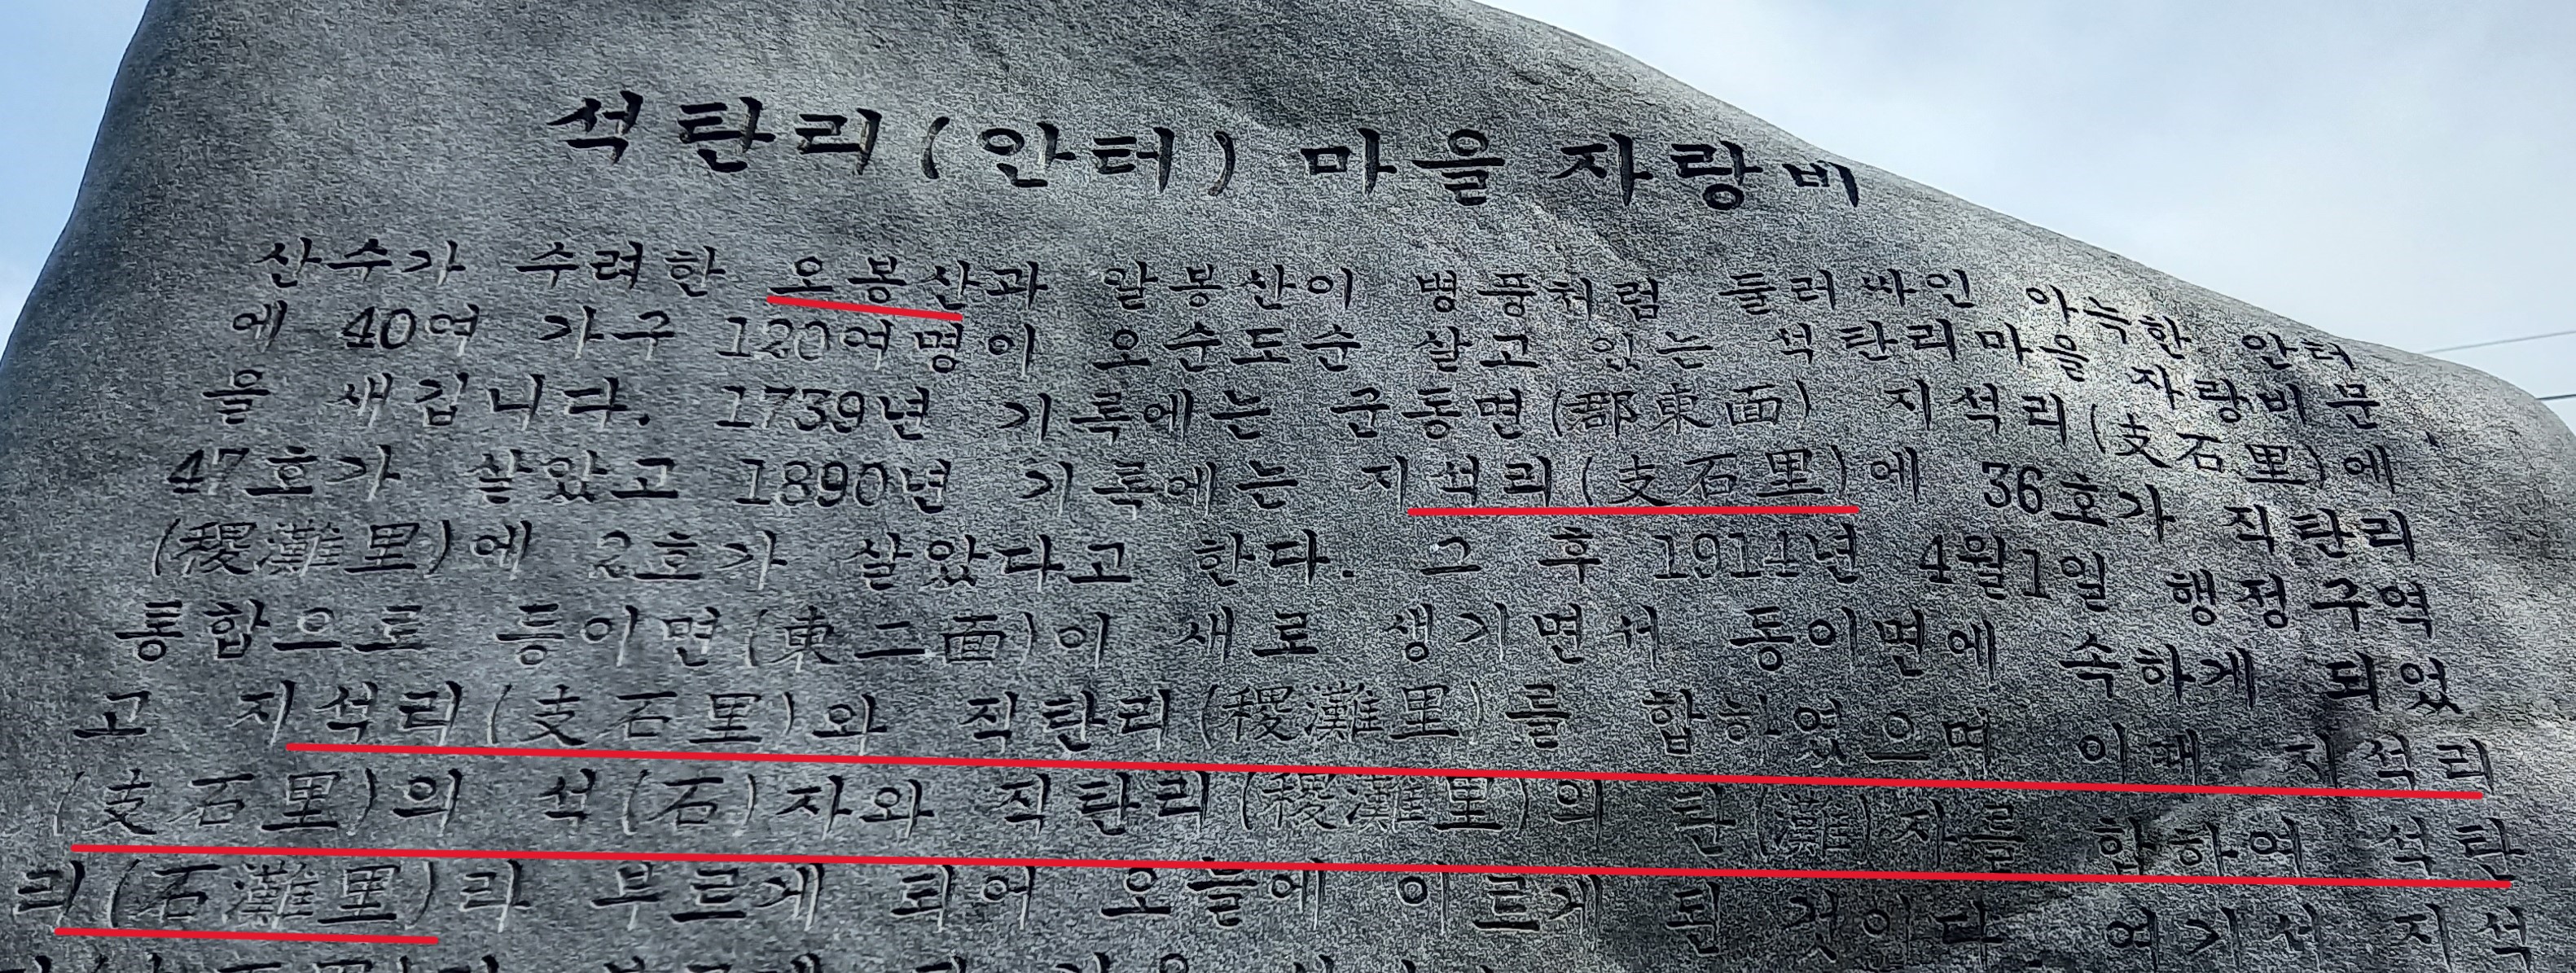 석탄리(안터) 마을 자랑비
산수가 수려한 오봉산과 알봉산이 병풍처럼 둘러싸인 아늑한 안터
에 40여 가구 120여명이 오순도순 살고 있는 석탄리마을 자랑비문
을 새깁니다. 1739년 기록에는 군동면(郡東面) 지석리(支石里)에
47호가 살았고 1890년 기록에는 지석리(支石里)에 36호가 직탄리
(稷灘里)에 2호가 살았다고 한다. 그 후 1914년 4월1일 행정구역
통합으로 동이면(東二面)이 새로 생기면서 동이면에 속하게 되었
고 지석리(支石里)와 직탄리(稷灘里)를 합하였으며 이때 지석리
(支石里)의 석(石)자와 직탄리(稷灘里)의 탄(灘)자를 합하여 석탄
리(石灘里)라 부르게 되어 오늘에 이르게 된 것이다. 여기서 지석